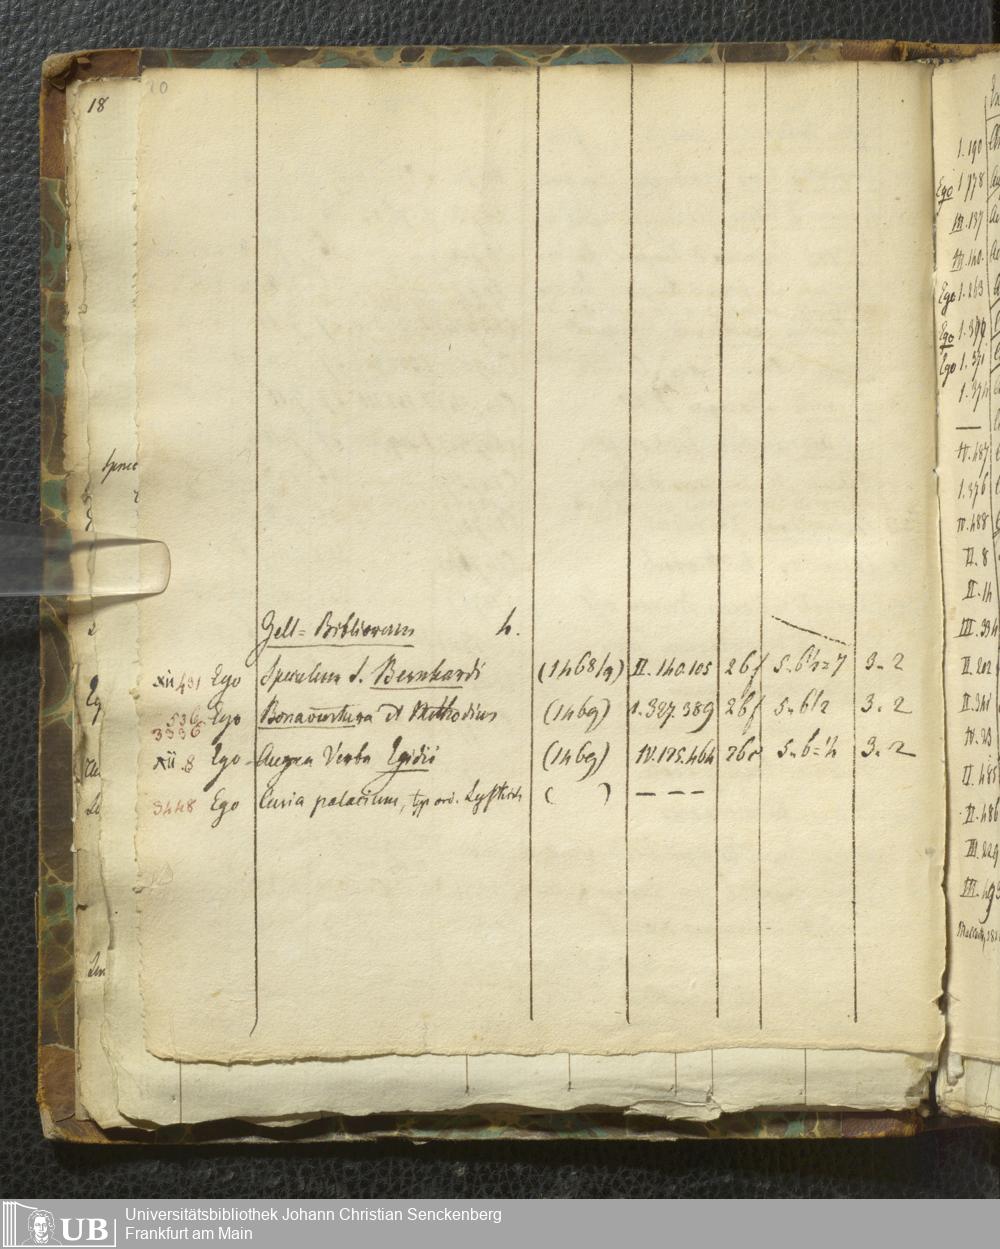 18
10
Zell= Bibliorum h.
XII.431 Ego Speculum S. Bernhardi (1468/9) II. 140.105 26f 5.6½=7 3.2
536
3336 Ego Bonaventura et Methodius (1469) 1.327.389 26f 5.6½ 3.2
XII.8 Ego Aurea Verba Egidii (1469) IV.175.464 26r 5.6=½ 3.2
3448 Ego Curia palacium, typ ord. ( ) — — —
1.190
Ego 1.778
III.137
III.140.
Ego 1.263
Ego 1.377
Ego 1.371
1.374
—
IV.487
1.376
IV.488
II.8
II.14
III.394
II.202
II.341
IV.23
II.485
II.486
III.229
III.493
Universitätsbibliothek Johann Christian Senckenberg
Frankfurt am Main
UB